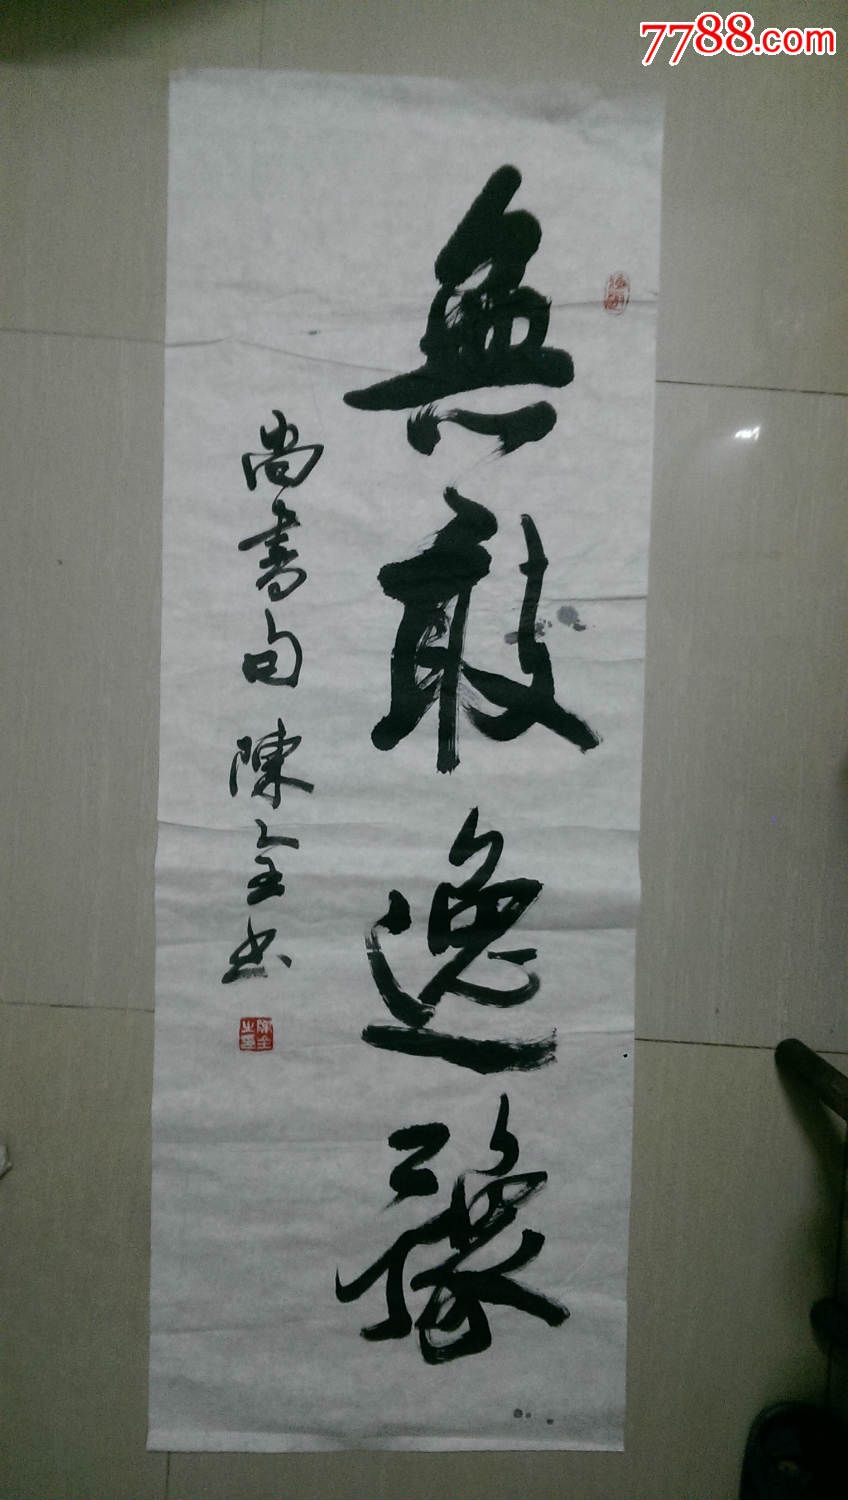 7788.com
無敢逸豫
尚書句 陳全书
陳全之印